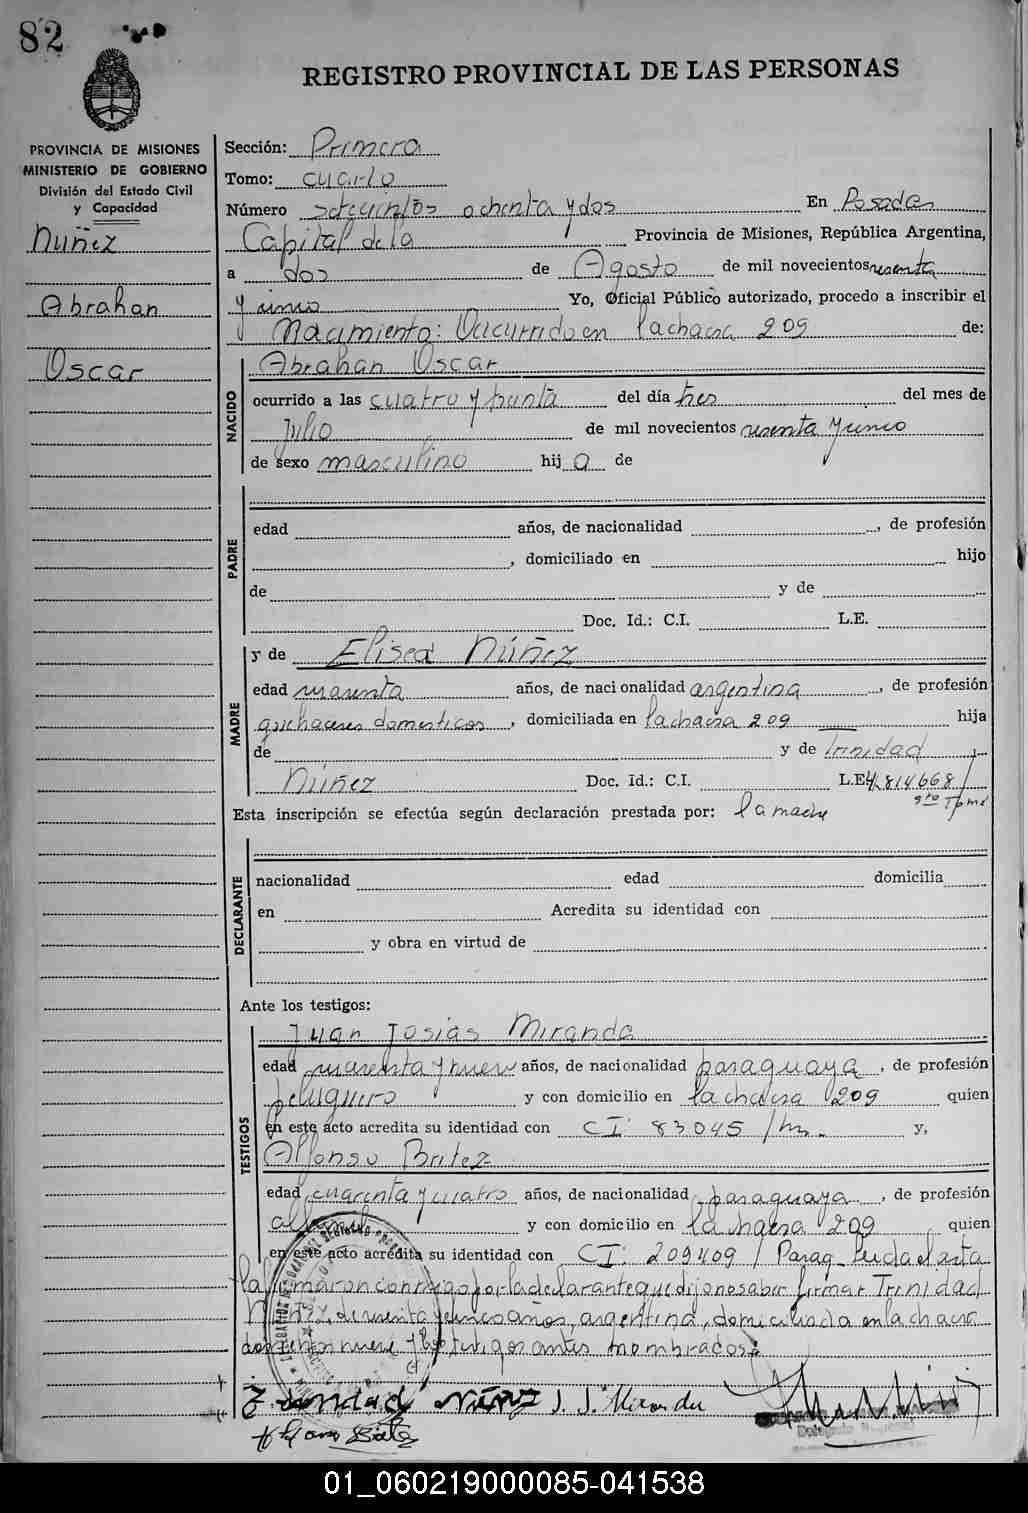 82
REGISTRO PROVINCIAL DE LAS PERSONAS
PROVINCIA DE MISIONES
MINISTERIO DE GOBIERNO
División del Estado Civil
y Capacidad
Núñez
Abrahan
Oscar
Sección: Primera
Tomo: cuarto
Número setecientos ochenta y dos En Posadas
Capital de la Provincia de Misiones, República Argentina,
a dos de Agosto de mil novecientos sesenta
y uno Yo, Oficial Público autorizado, procedo a inscribir el
Nacimiento: Ocurrido en la chacra 209 de:
NACIDO
Abrahan Oscar
ocurrido a las cuatro y punta del día tres del mes de
Julio de mil novecientos sesenta y uno
de sexo masculino hij o de
PADRE
edad años, de nacionalidad , de profesión
, domiciliado en hijo
de y de
Doc. Id.: C.I. L.E.
MADRE
y de Elisea Núñez
edad cuarenta años, de nacionalidad argentina , de profesión
quehaceres domesticos , domiciliada en la chacra 209 hija
de y de Trinidad
Núñez Doc. Id.: C.I. L.E. 4.814668/
Esta inscripción se efectúa según declaración prestada por: la madre
DECLARANTE
nacionalidad edad domicilia
en Acredita su identidad con
y obra en virtud de
Ante los testigos:
TESTIGOS
Juan Josías Miranda
edad cuarenta y nueve años, de nacionalidad paraguaya , de profesión
peluquero y con domicilio en la chacra 209 quien
en este acto acredita su identidad con CI: 83045 / y,
Alfonso Britez
edad cuarenta y cuatro años, de nacionalidad paraguaya , de profesión
y con domicilio en la chacra 209 quien
en este acto acredita su identidad con CI: 209409 / Parag. Leida el acta
la firmaron conmigo por la declarante que dijo no saber firmar Trinidad
Núñez, de sesenta y cinco años, argentina, domiciliada en la chacra
doscientos nueve y los testigos antes nombrados.
Trinidad Núñez J. J. Miranda
01_060219000085-041538